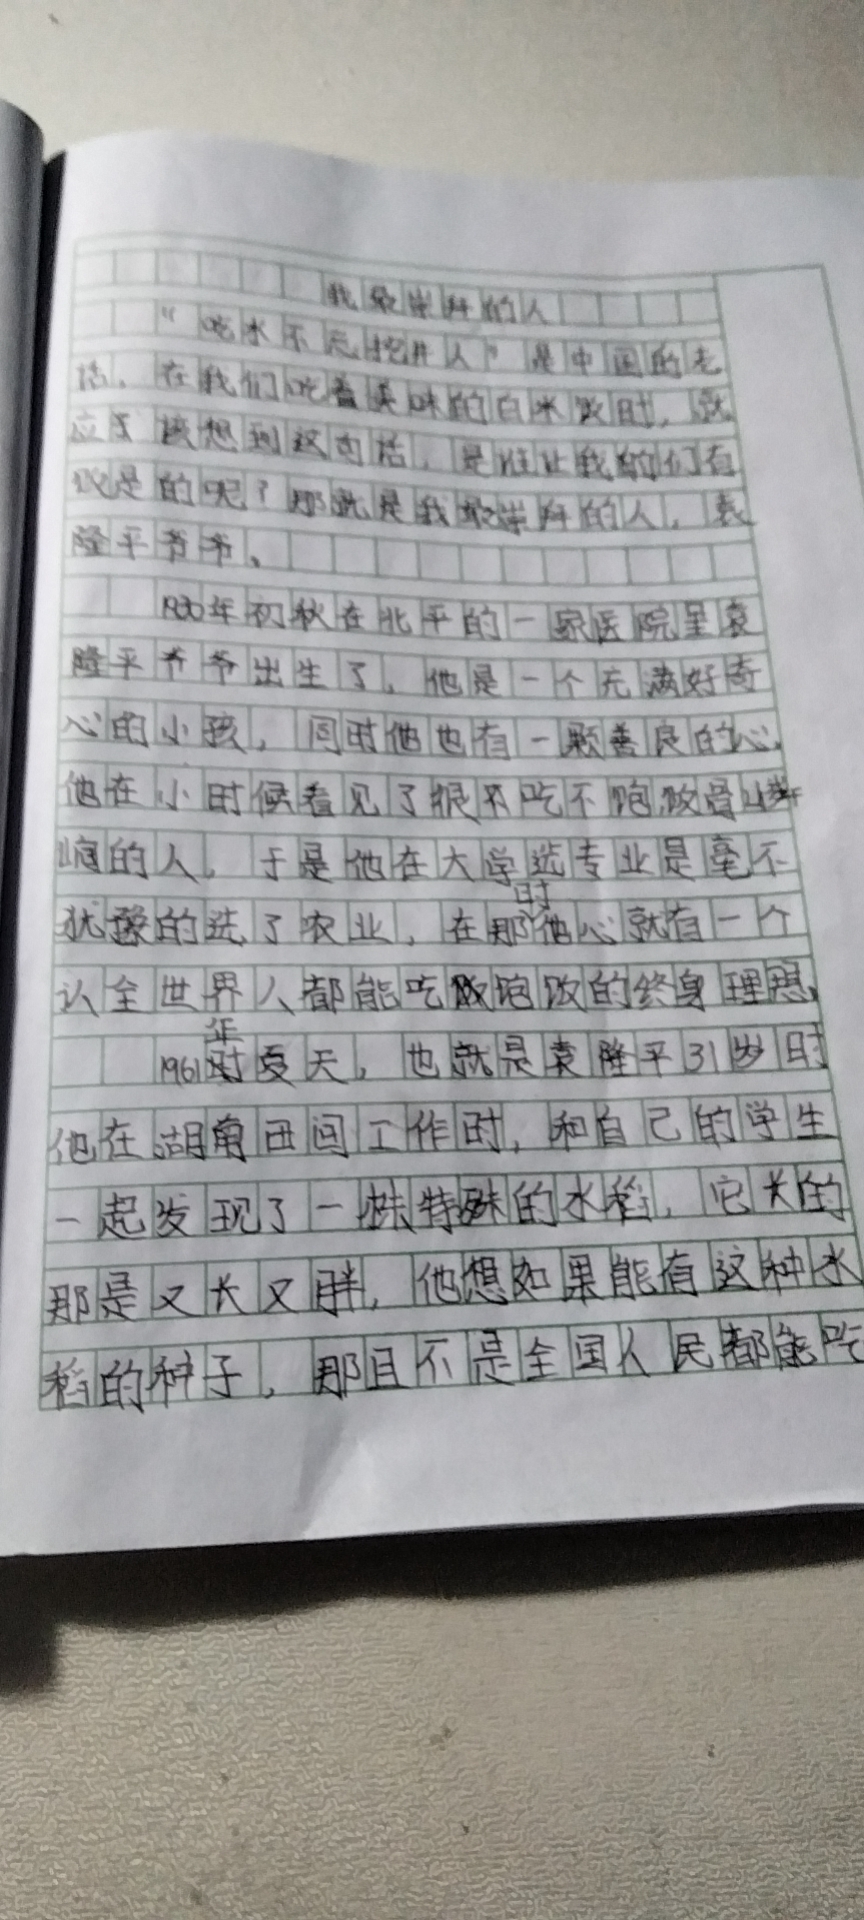 我最崇拜的人
“吃水不忘挖井人”是中国的老
话，在我们吃着美味的白米饭时，就
应该想到这句话，是谁让我们有
饭是的呢？那就是我最崇拜的人，袁
隆平爷爷。
1930年初秋在北平的一家医院里袁
隆平爷爷出生了，他是一个充满好奇
心的小孩，同时他也有一颗善良的心，
他在小时候看见了很多吃不饱饭骨瘦
的人，于是他在大学选专业是毫不
犹豫的选了农业，在那时他心就有一个
认全世界人都能吃饱饭的终身理想，
1961年夏天，也就是袁隆平31岁时
他在湖南田间工作时，和自己的学生
一起发现了一株特殊的水稻，它长的
那是又长又胖，他想如果能有这种水
稻的种子，那且不是全国人民都能吃